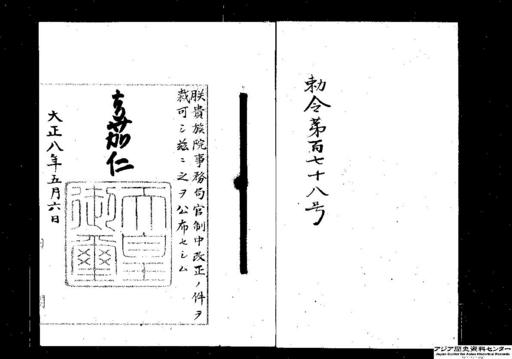 勅令第百七十八号
朕貴族院事務局官制中改正ノ件ヲ
裁可シ茲ニ之ヲ公布セシム
嘉仁
天皇御璽
大正八年五月六日
アジア歴史資料センター
Japan Center for Asian Historical Records